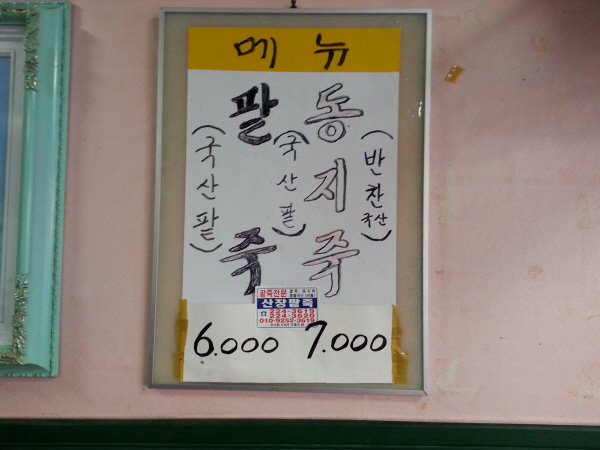 메뉴
팥죽
(국산팥)
동지죽
(국산팥)
(반찬국산)
팥죽전문
산장팥죽
☎ 224-3619
224-3620
010-9252-3619
6.000 7.000